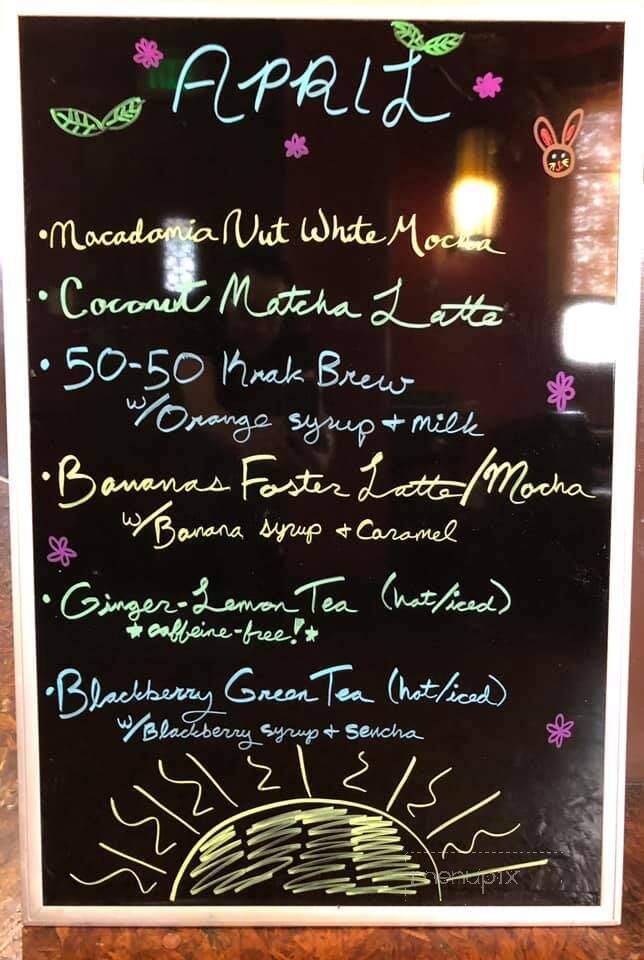 APRIL
• Macadamia Nut White Mocha
• Coconut Matcha Latte
• 50-50 Krak Brew
w/Orange syrup + milk
• Bananas Foster Latte/Mocha
w/Banana syrup + Caramel
• Ginger-Lemon Tea (hot/iced)
★caffeine-free!★
• Blackberry Green Tea (hot/iced)
w/Blackberry syrup + sencha
menupix